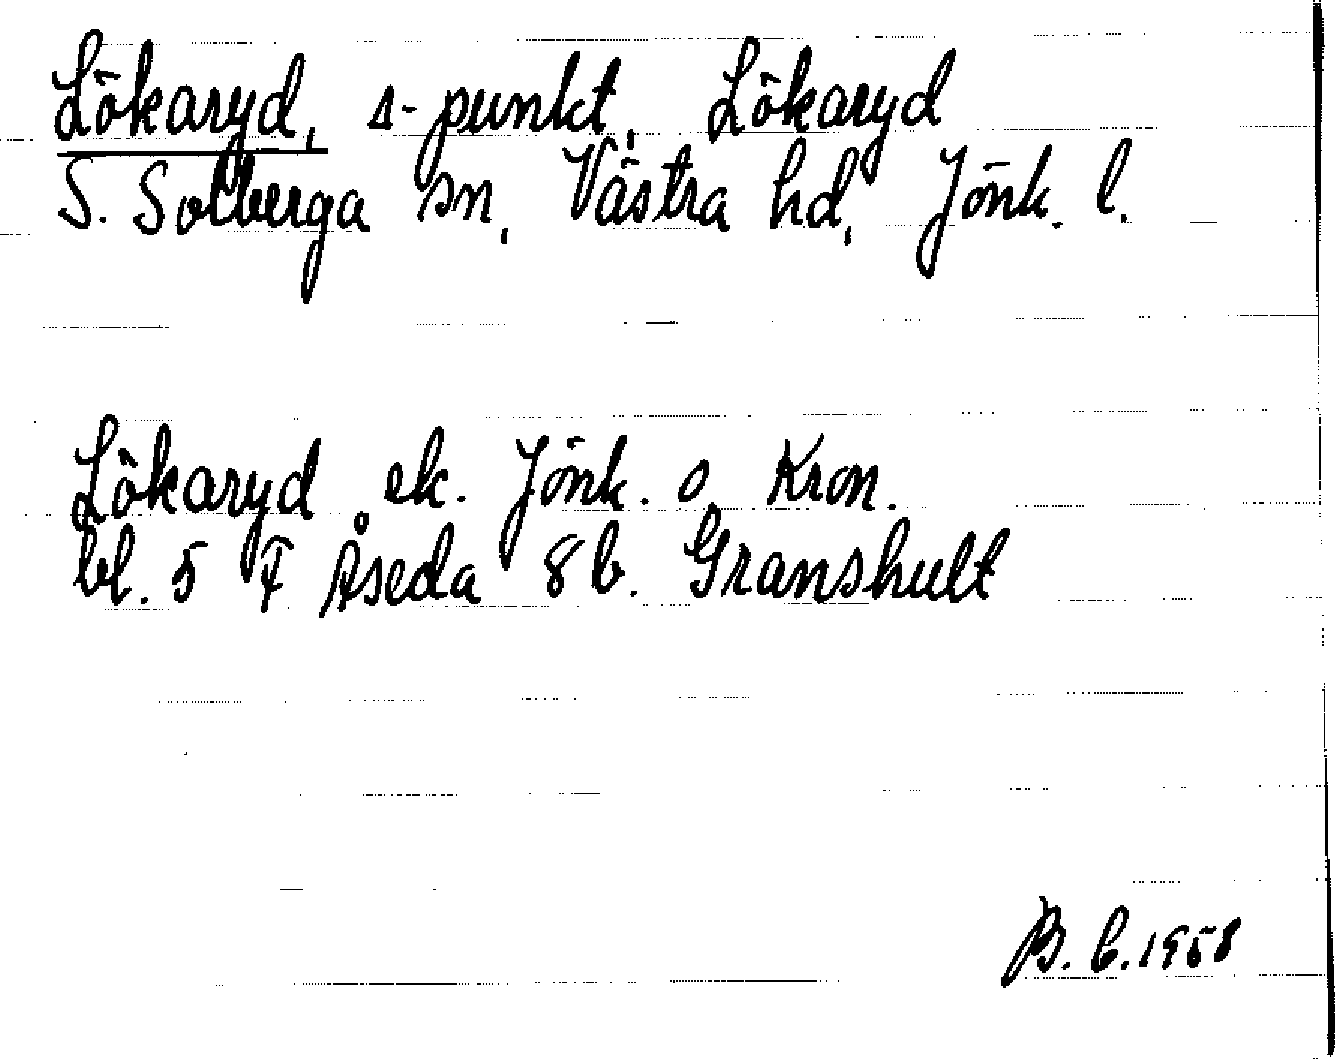 Lökaryd, ∆-punkt, Lökaryd
S. Solberga sn, Västra hd, Jönk. l.
Lökaryd ek. Jönk. o Kron.
bl. 5 F Åseda 8b. Granshult
B. C. 1958